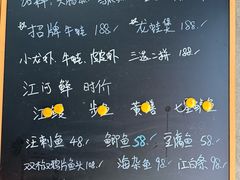 招牌牛蛙 188.- 龙蛙煲 188.-
小龙虾、牛蛙、皮虾 三选二拼 188.-
江河鲜 时价
江 步鱼 黄鳝 七
汪刺鱼 48.- 鲫鱼 58.- 豆腐鱼 58.-
双椒鸦片鱼头 108.- 海杂鱼 98.- 江白条 98.-